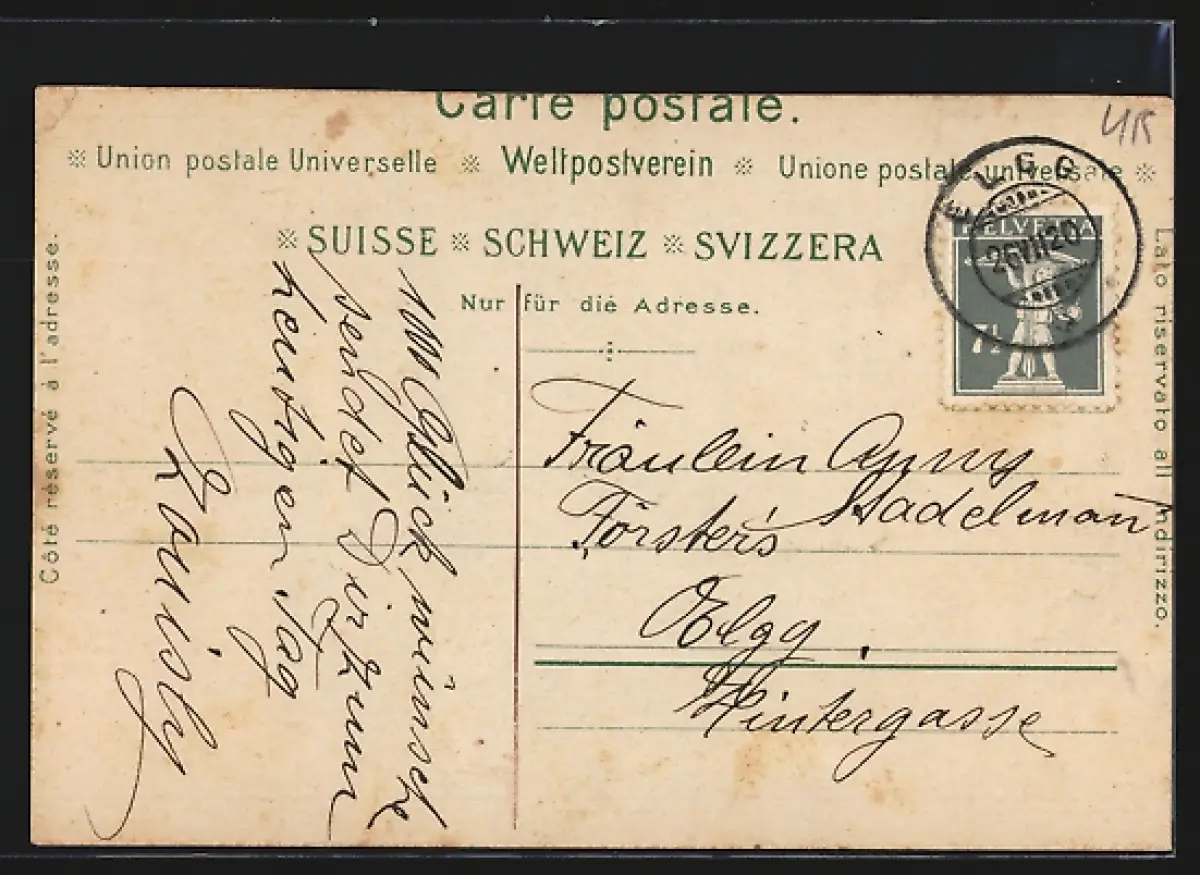 Carte postale.
※ Union postale Universelle ※ Weltpostverein ※ Unione postale universale ※
※ SUISSE ※ SCHWEIZ ※ SVIZZERA
Nur für die Adresse.
Côté réservé à l'adresse.
Lato riservato all indirizzo.
ELGG
26 VII 20
HELVETIA
7½
Glückwünsche
sendet Dir zum
heutigen Tag
Fräulein Anny
Stadelman
Försters
Elgg.
Hintergasse